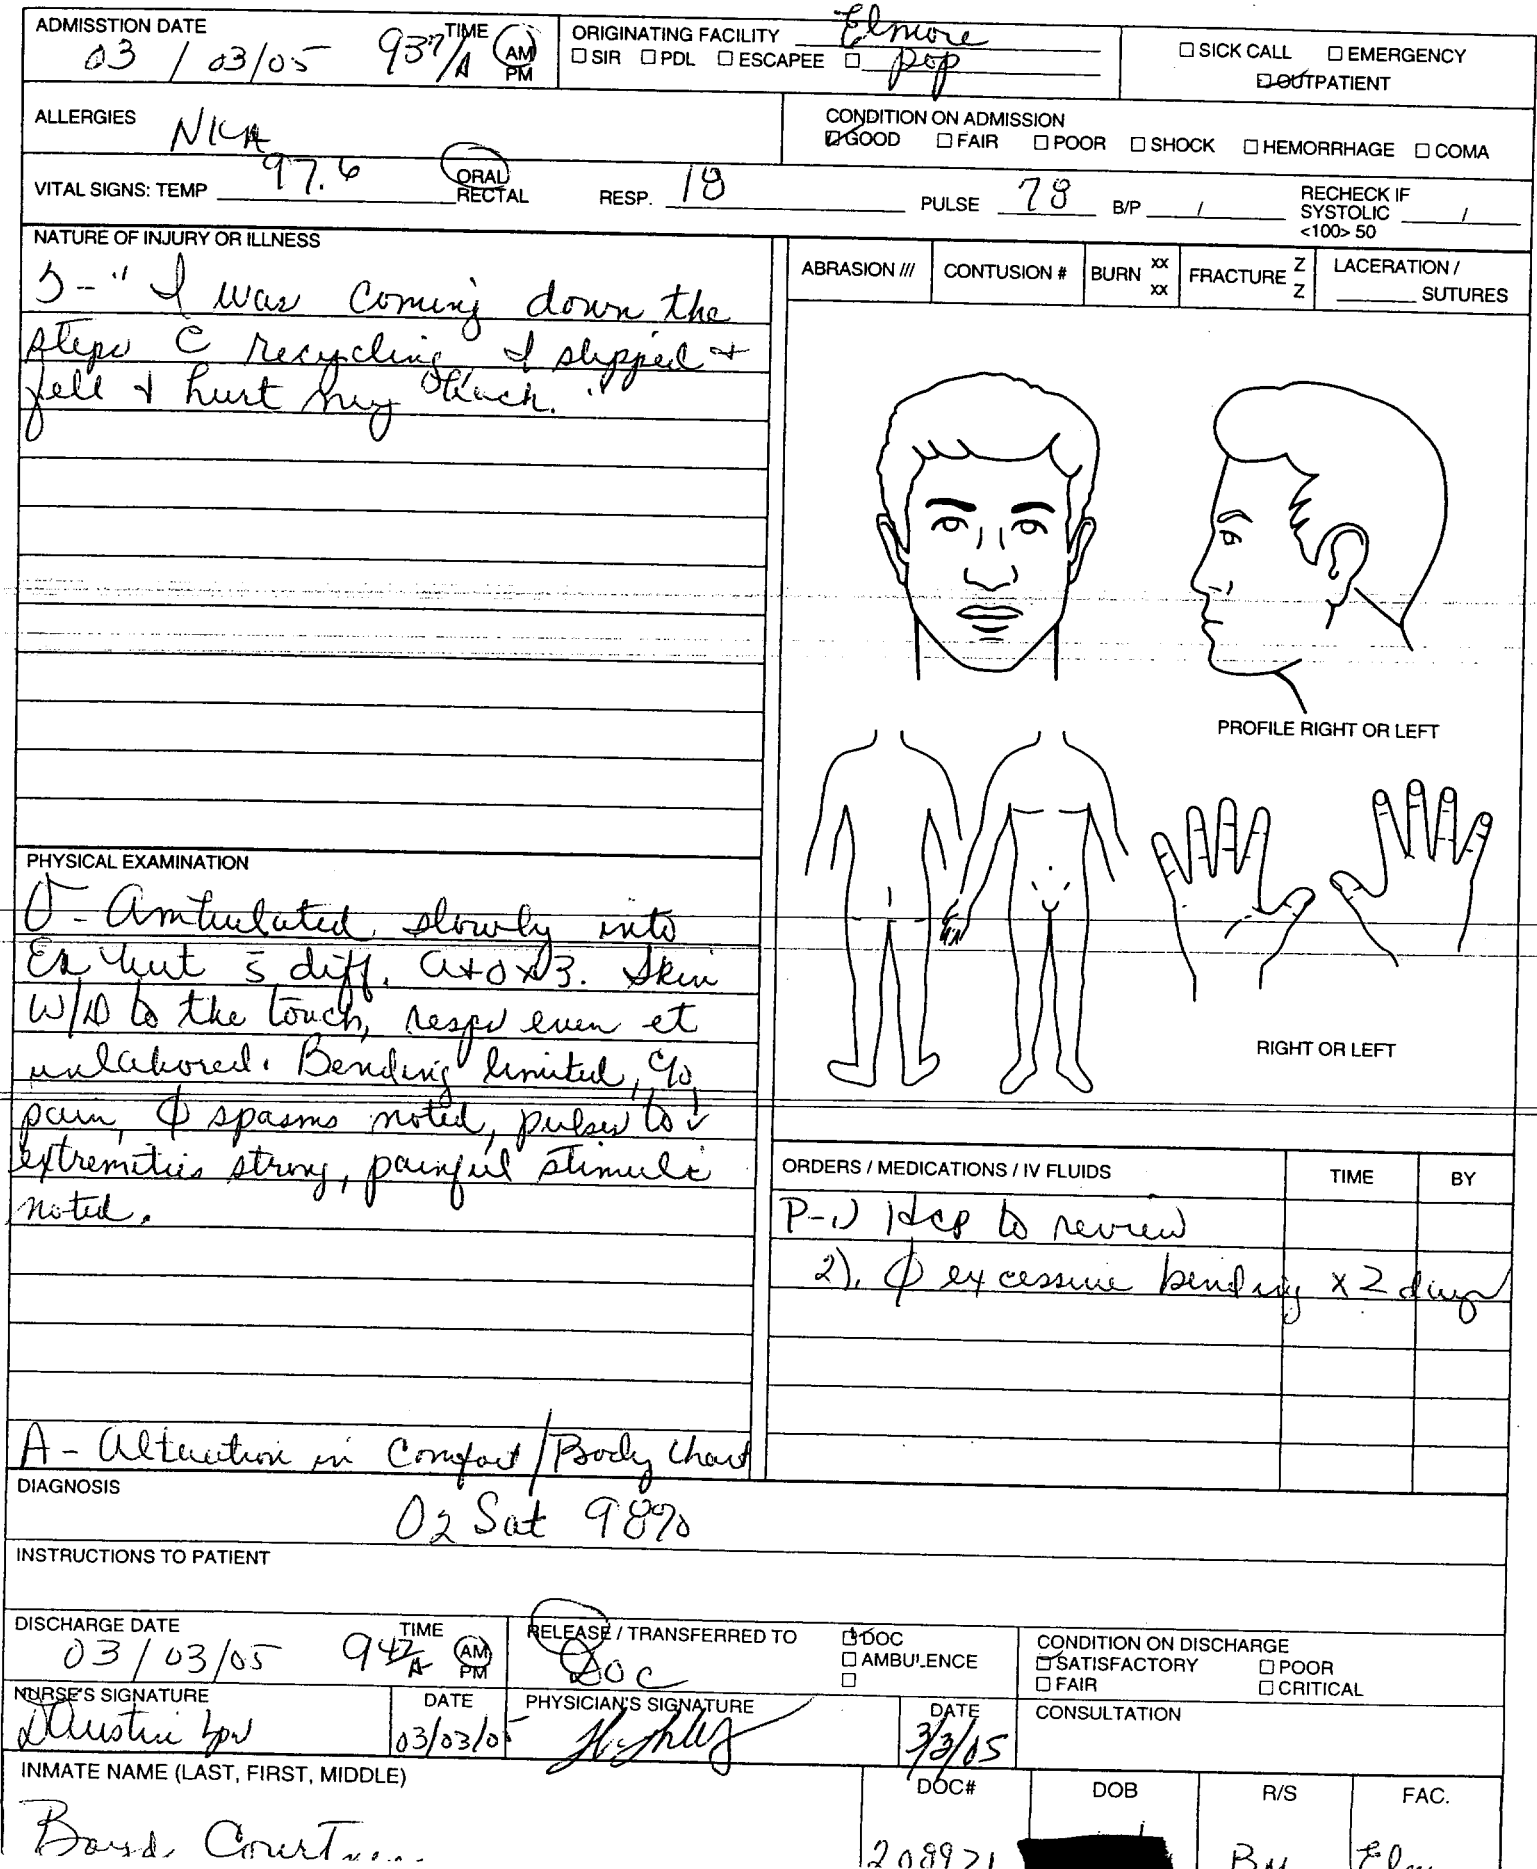 ADMISSTION DATE 03 / 03/05 TIME 937/A AM PM
ORIGINATING FACILITY Elmore
□ SIR □ PDL □ ESCAPEE □ pop
□ SICK CALL □ EMERGENCY
□ OUTPATIENT
ALLERGIES NKA
CONDITION ON ADMISSION
□ GOOD □ FAIR □ POOR □ SHOCK □ HEMORRHAGE □ COMA
VITAL SIGNS: TEMP 97.6 ORAL RECTAL RESP. 18 PULSE 78 B/P / RECHECK IF SYSTOLIC / <100> 50
NATURE OF INJURY OR ILLNESS
S- "I was coming down the
steps c recycling I slipped +
fell + hurt my back."
ABRASION /// CONTUSION # BURN xx xx FRACTURE Z Z LACERATION / SUTURES
PROFILE RIGHT OR LEFT
RIGHT OR LEFT
PHYSICAL EXAMINATION
O- Ambulated slowly into
ER but s diff. A+O x 3. Skin
W/D to the touch, resps even et
unlabored. Bending limited, c/o
pain, φ spasms noted, pulses to ↓
extremities strong, painful stimuli
noted.
A - Alteration in Comfort / Body Chart
ORDERS / MEDICATIONS / IV FLUIDS TIME BY
P-1) HCP to review
2). φ excessive bending x 2 days
DIAGNOSIS
O2 Sat 98%
INSTRUCTIONS TO PATIENT
DISCHARGE DATE 03/03/05 TIME 942/A AM PM
RELEASE / TRANSFERRED TO DOC
□ DOC
□ AMBULENCE
□
CONDITION ON DISCHARGE
□ SATISFACTORY □ POOR
□ FAIR □ CRITICAL
NURSE'S SIGNATURE DAustin lpn DATE 03/03/05
PHYSICIAN'S SIGNATURE DATE 3/3/05
CONSULTATION
INMATE NAME (LAST, FIRST, MIDDLE) DOC# DOB R/S FAC.
Boyd, Courtney 208921 BM Elm